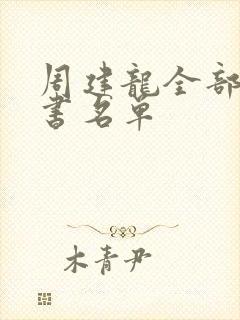 周建龍全部
書名单
木青尹